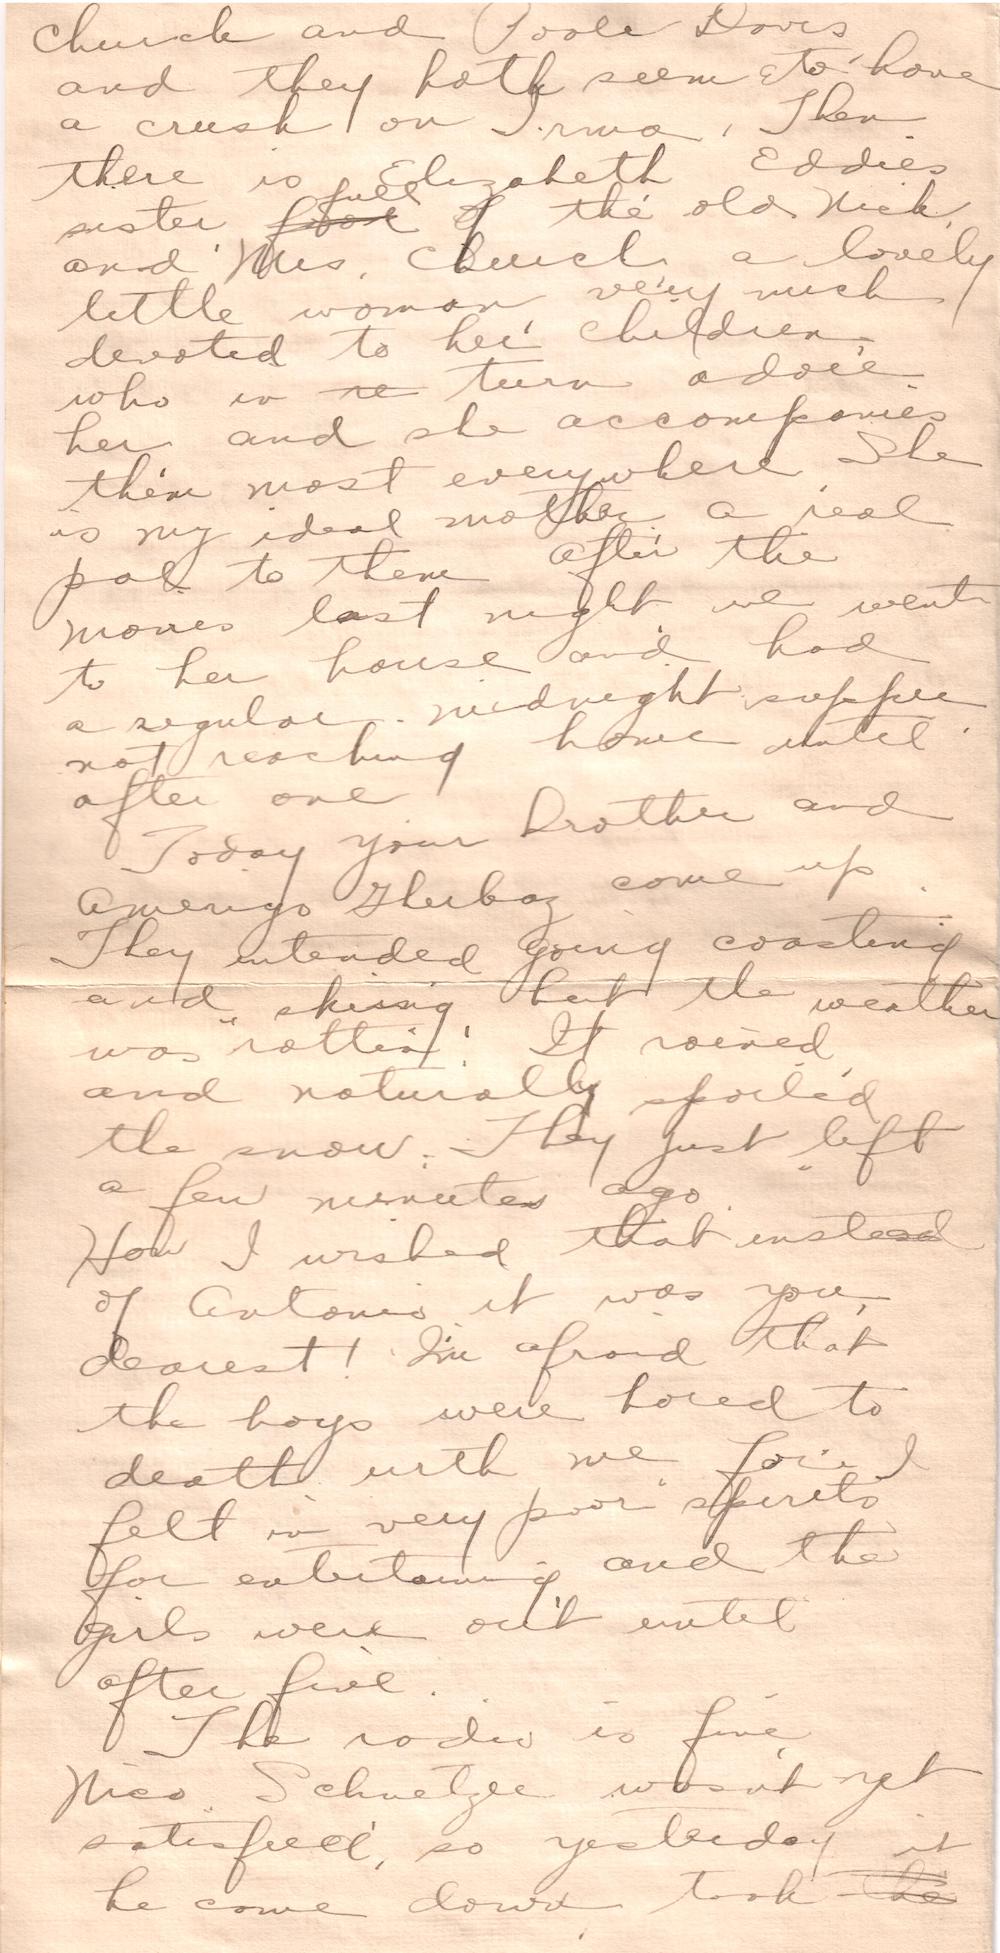 Church and Poole Davis
and they both seem to have
a crush on Irma. Then
there is Elizabeth Eddies
sister full of the old Nick,
and Mrs. Church a lovely
little woman very much
devoted to her children
who in re turn adore
her and she accompanies
them most everywhere. She
is my ideal mother a real
pal to them After the
movies last night we went
to her house and had
a regular midnight supper
not reaching home until
after one
Today your brother and
Amerigo come up.
They intended going coasting
and skiing but the weather
was "rotten". It rained
and naturally spoiled
the snow. They just left
a few minutes ago.
How I wished that instead
of Antonio it was you,
dearest! I'm afraid that
the boys were bored to
death with me for I
felt in very poor spirits
for entertaining and the
girls were out until
after five.
The radio is fine
Nico Schnetzle wasn't yet
satisfied, so yesterday
he come down took it